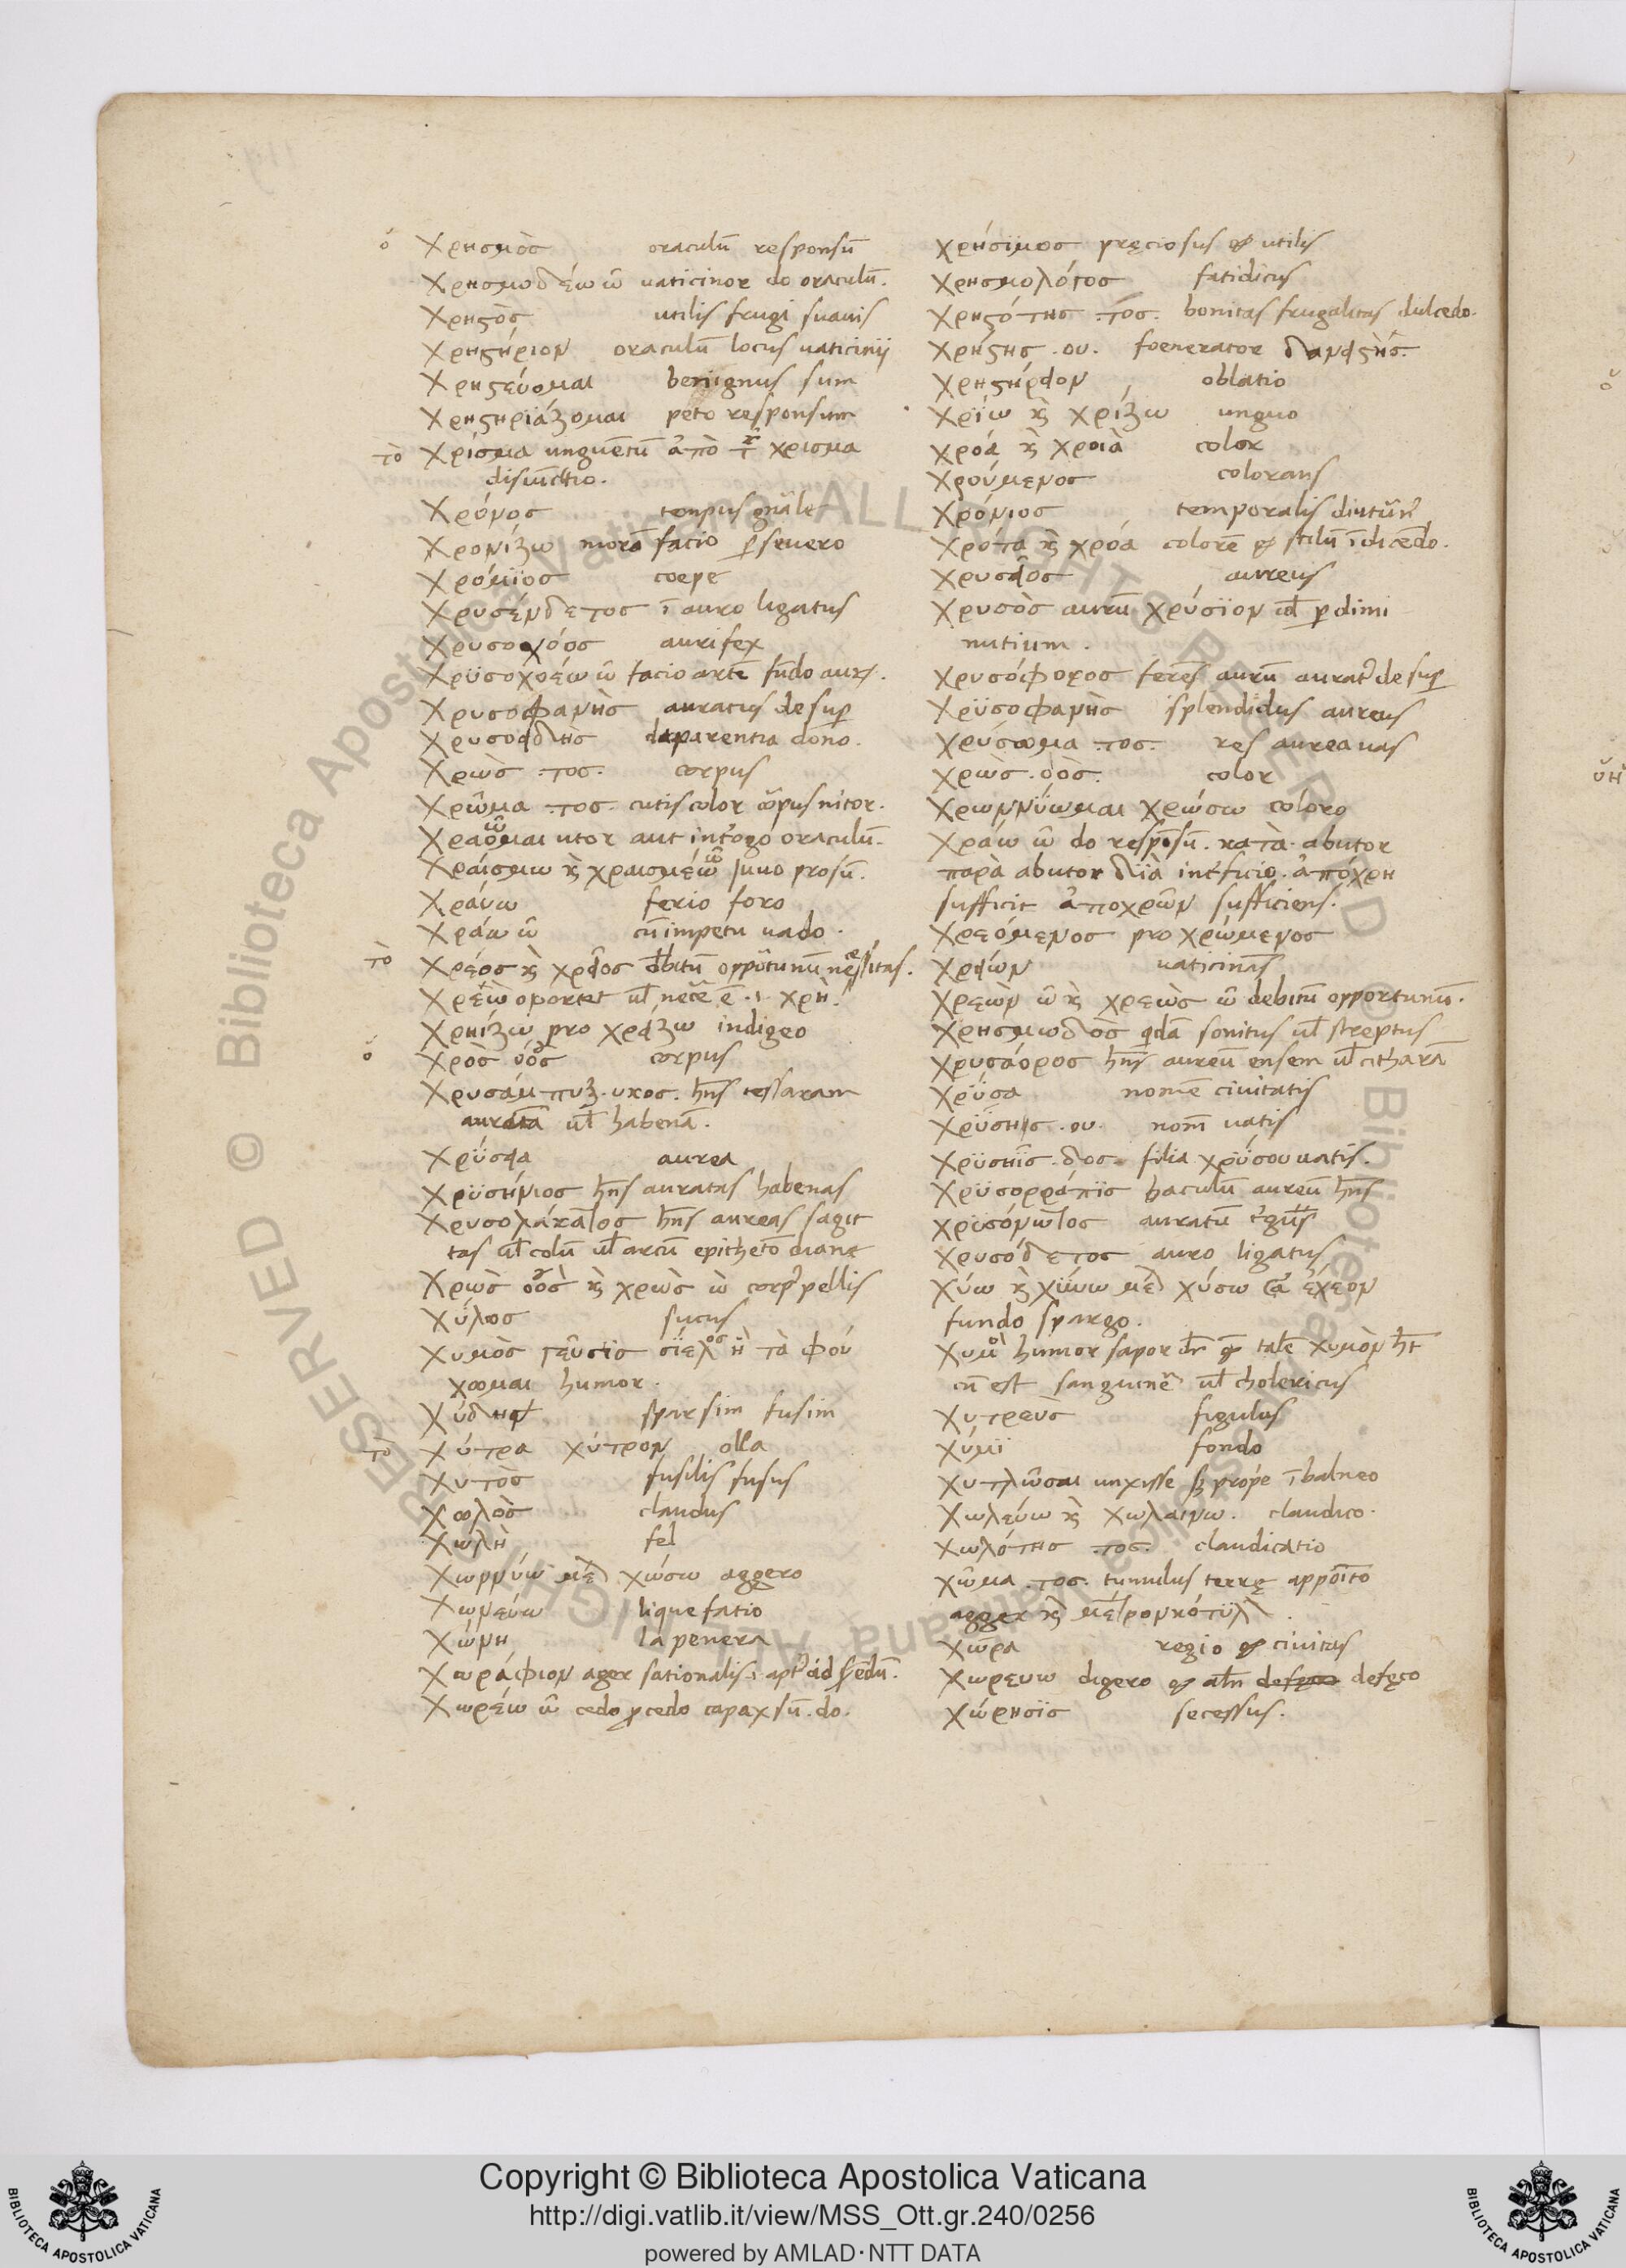 ὁ Χρησμὸς oraculū responsū
Χρησμωδέω ῶ uaticinor do oraculū.
Χρηϛὸς utilis frugi suauis
Χρηϛήριον oraculū locus uaticinij
Χρηϛεύομαι benignus sum
Χρηϛηριάζομαι peto responsum
τὸ Χρίσμα unguētū ἀπὸ χρισμα
disiūctio.
Χρόνος tempus gn̄ale
Χρονίζω morā facio ꝑseuero
Χρόμϊος coepe
Χρυσένδετος ī auro ligatus
Χρυσοχόος aurifex
Χρϋσοχοέω ῶ facio artē fūdo aur
Χρυσοφανὴς auratus desuꝑ
Χρυσοειδὴς apparentia dono.
Χρὼς .τος. corpus
Χρῶμα .τος. cutis color corpus nitor.
Χραόμαι utor aut intʼrogo oraculū.
Χραίσμω κ̀ χραισμέω iuuo prosū.
Χραύω ferio foro
Χράω ῶ cū impetu uado.
τὸ Χρέος κ̀ χρεῖος dēbitū opportunū necessitas.
Χρέϊὼ oportet ul̄ necē ē .ι. χρὴ.
Χρηίζω pro χρείζω indigeo
ὁ Χρὸς οόὸς corpus
Χρυσάμπυξ .υκος. hn̄s tessaram
auratā ul̄ habenā.
Χρϋσεια aurea
Χρϋσήνιος hn̄s auratas habenas
Χρυσολάκατος hn̄s aureas sagit
tas ul̄ colū ul̄ arcū epithetō dianę
Χρὼς οὸς κ̀ χρὼς ὼ corpʼ pellis
Χύλος sucus
Χυμὸς γεῦσις σϊελος ἢ τὰ φού
χομαι humor.
Χύδην sparsim fusim
τὸ Χύτρα χύτρον olla
Χυτὸς fusilis fusus
Χωλὸς claudus
Χωλὴ fel
Χωρρύω μὲλ χώσω aggero
Χωνεύω liquefatio
Χώνη la penera
Χωράφιον ager sationalis .ι. aptʼ ad serēdū.
Χωρέω ῶ cedo ꝓcedo capax sū. do.
Χρήσϊμος pręciosus & utilis
Χρησμολόγος fatidicus
Χρηϛότης .τος. bonitas frugalitas dulcedo.
Χρήϛης .ου. foenerator δανειϛὴς.
Χρηϛήρειον oblatio
Χρίω κ̀ χρίζω unguo
Χρόα κ̀ χροιὰ color
Χρούμενος colorans
Χρόνιος temporalis diutūnʼ
Χρότα κ̀ χρόα colorē & stilū īdicēdo.
Χρυσεῖος aureus
Χρυσὸς aurū χρύσϊον id̄ ꝑ dimi
nutium.
Χρυσόφορος ferēs aurū auratʼ desuꝑ
Χρϋσοφανὴς splendidus aureus
Χρύσωμα .τος. res aurea uas
Χρὼς .οὸς. color
Χρωννϋωμαι χρώσω coloro
Χράω ῶ do respōsū. κατὰ abutor
παρὰ abutor διὰ intʼficio. ἀπόχρη
sufficit ἀποχρῶν sufficiens.
Χρεόμενος pro χρώμενος
Χρείων uaticinās
Χρεὼν ῶ κ̀ χρεὼς ῶ debitū opportunū.
Χρησμωδὸς qdā sonitus ul̄ streptus
Χρυσάορος hn̄s aureū ensem ul̄ citharā
Χρϋσα nomē ciuitatis
Χρϋσης .ου. nom̄ uatis
Χρϋσηῒς .δος. filia χρύσου uatis.
Χρϋσορράπϊς baculū aureū hn̄s
Χρϋσόνωτος auratū tʼgus
Χρυσόδετος auro ligatus
Χύω κ̀ χϋνω μὲλ χύσω ἔχεον
fundo spargo.
Χυμὸ humor sapor talē χυμὸν
cū est sanguinē ul̄ cholericus
Χυτρεὺς figulus
Χύμϊ fondo
Χυτλῶσαι unxisse prope ī balneo
Χωλεύω κ̀ χωλαινω. claudico.
Χωλότης .τος. claudicatio
Χῶμα .τος. tumulus terrę
agger κ̀ μέτρον κότϋλ
Χώρα regio & ciuitas
Χωρευω digero & defęco
Χώρησϊς secessus.
Copyright © Biblioteca Apostolica Vaticana
http://digi.vatlib.it/view/MSS_Ott.gr.240/0256
powered by AMLAD・NTT DATA